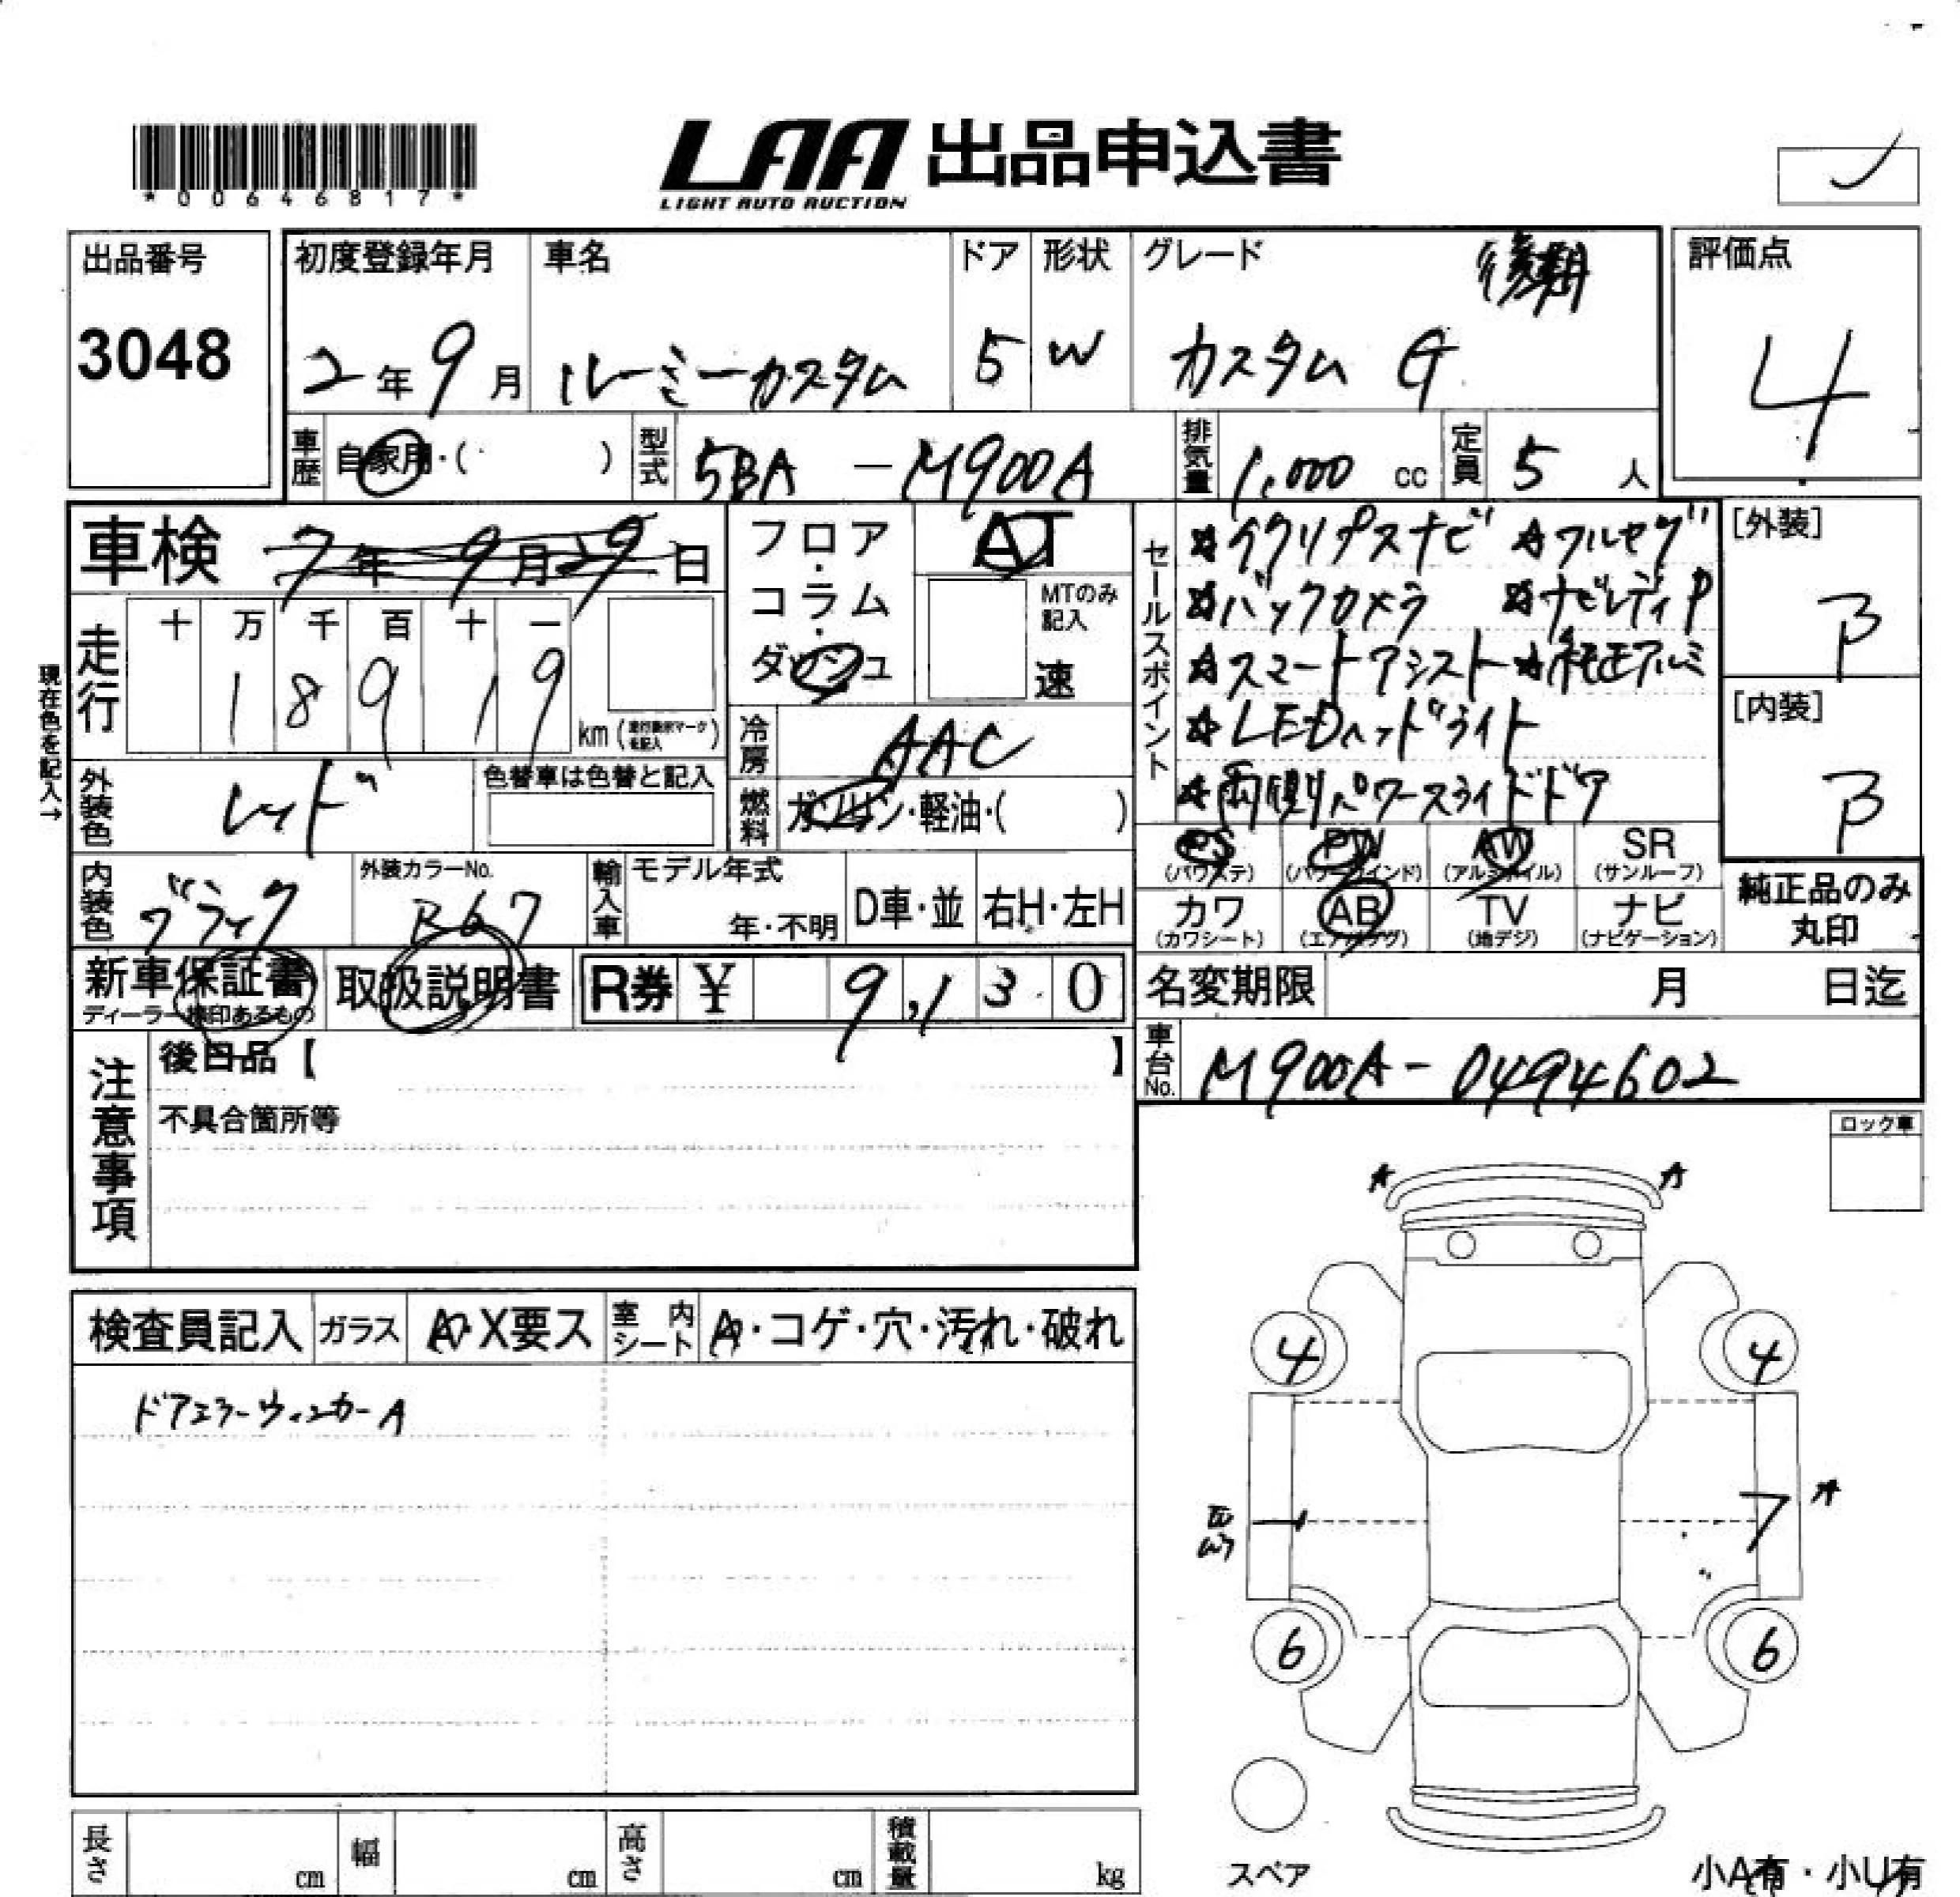 *00646817*
LAA 出品申込書
LIGHT AUTO AUCTION
出品番号
3048
初度登録年月
2年9月
車名
ルーミーカスタム
ドア
5
形状
W
グレード 後期
カスタム G
評価点
4
車歴 自家用・( )
型式 5BA - M900A
排気量 1,000 cc
定員 5 人
車検 7年9月29日
走行
十 万 千 百 十 一
1 8 9 1 9
km
現在色を記入→
外装色 レッド
色替車は色替と記入
内装色 ブラック
外装カラーNo.
R67
輸入車
モデル年式
年・不明
D車・並
右H・左H
フロア・コラム・ダッシュ
AT
MTのみ記入
速
冷房 AAC
燃料 ガソリン・軽油・( )
セールスポイント
☆フルセグ
☆バックカメラ
☆スマートアシスト ☆純正アルミ
☆LEDヘッドライト
☆両側パワースライドドア
[外装]
B
[内装]
B
PS (パワステ)
PW (パワーウインド)
AW (アルミホイル)
SR (サンルーフ)
カワ (カワシート)
AB (エアバッグ)
TV (地デジ)
ナビ (ナビゲーション)
純正品のみ丸印
新車保証書
ディーラー検印あるもの
取扱説明書
R券 ¥ 9,130
名変期限 月 日迄
車台No. M900A-0494602
注意事項
後日品【 】
不具合箇所等
ロック車
検査員記入
ガラス A・X要ス
室内シート A・コゲ・穴・汚れ・破れ
ドアミラーウィンカーA
A A
4 4
A
6 6
スペア
小A有・小U有
長さ cm
幅 cm
高さ cm
積載量 kg